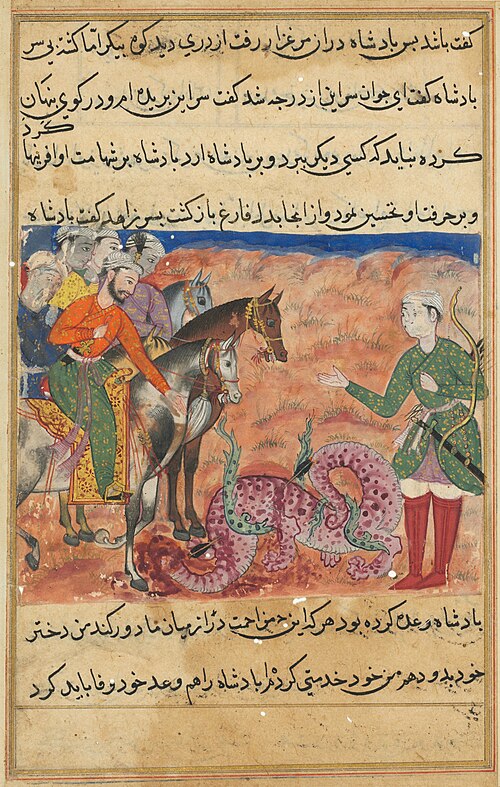 گفت باشد پس پادشاه در از مرغزار رفت اژدری دید کوه پیکر اما کشته بی سر
پادشاه گفت ای جوان سر این اژدر چه شد گفت سر این بریده ام و در کوی پنهان
کرد
کرده نباید که کسی دیگر ببرد و بر پادشاه ارد پادشاه بر شهامت او افرینها
و بر حرفت او تحسین نمود و از انجا بدل فارغ باز گشت پسر زاهد گفت پادشاه
پادشاه وعده کرده بود هر که این زحمت از میان ما دور کند من دختر
خود بدو دهم من خود خدمتی کردم پادشاه را هم وعد خود وفا باید کرد